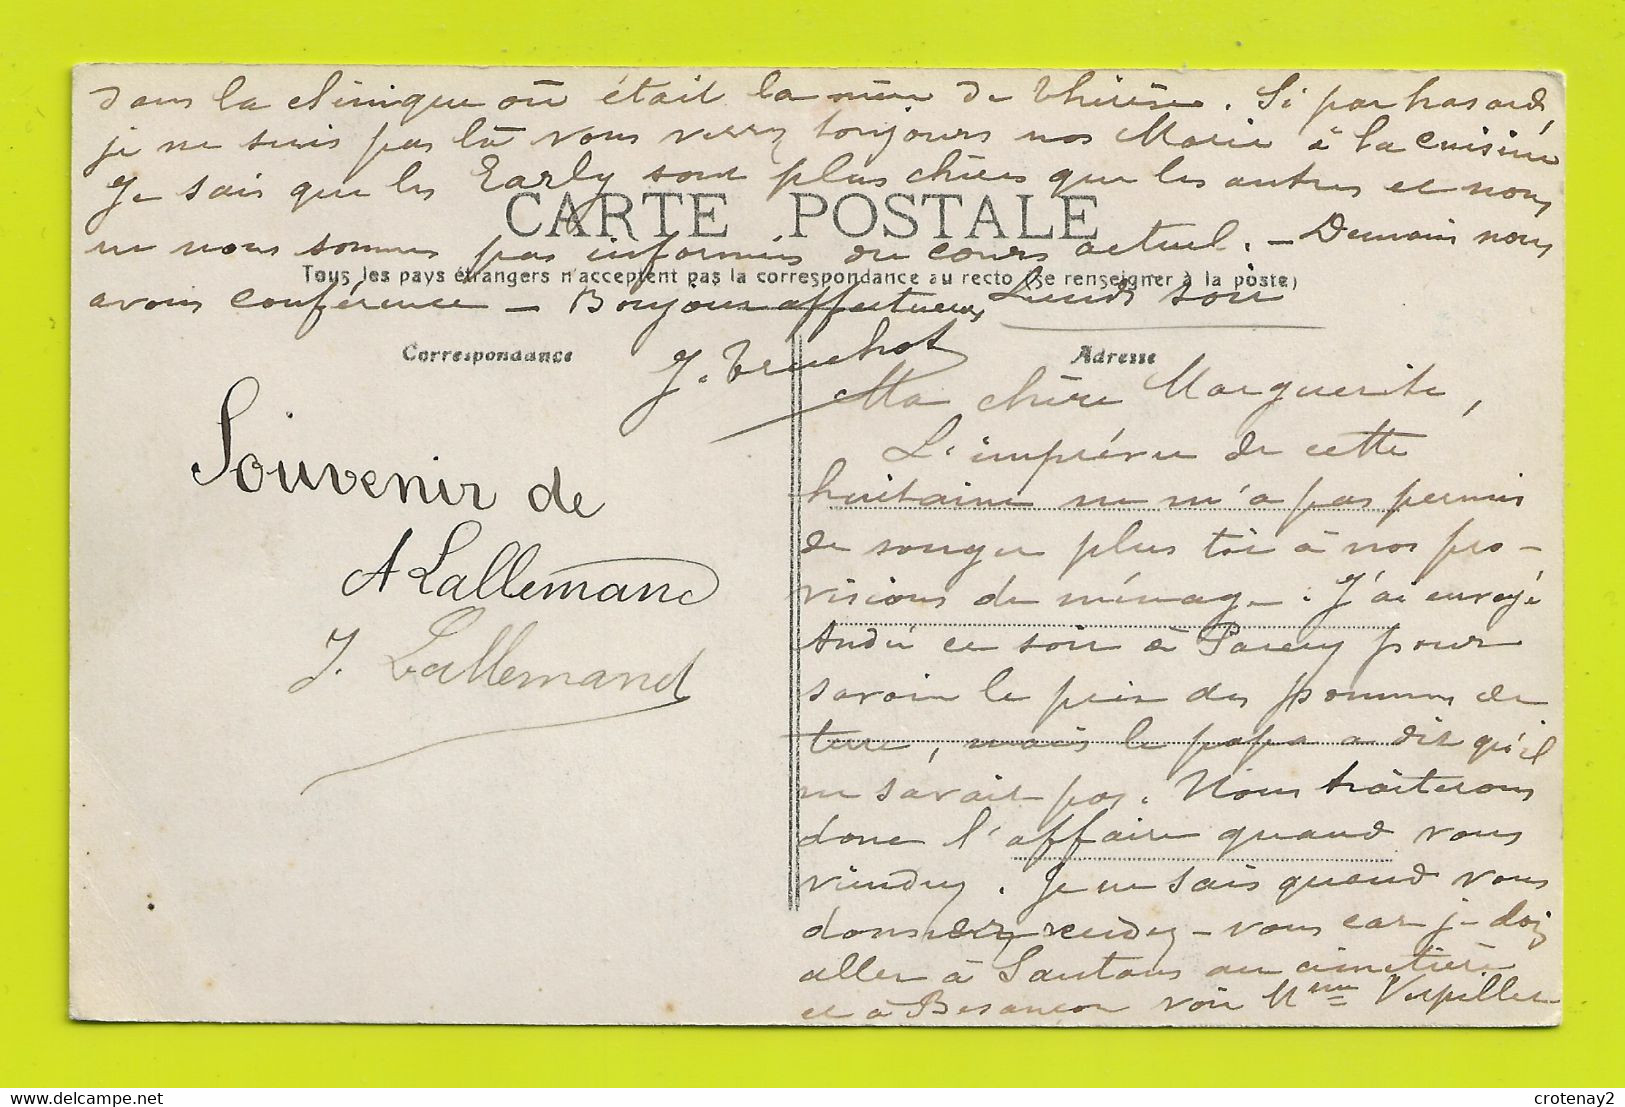 dans la clinique où était la mère de Thérèse. Si par hasard,
je ne suis pas là vous verrez toujours nos Marie à la cuisine
Je sais que les Early sont plus chères que les autres et nous
CARTE POSTALE
ne nous sommes pas informés du cours actuel. - Demain nous
Tous les pays étrangers n'acceptent pas la correspondance au recto (Se renseigner à la poste)
avons conférence - Bonjour affectueux Lundi soir
J. Truchot
Correspondance
Souvenir de
A Lallemand
J. Lallemand
Adresse
Ma chère Marguerite,
L'imprévu de cette
huitaine ne m'a pas permis
de songer plus tôt à nos pro-
visions de ménage. J'ai envoyé
André ce soir à Parcey pour
savoir le prix des pommes de
terre, mais le papa a dit qu'il
ne savait pas. Nous traiterons
donc l'affaire quand vous
viendrez. Je ne sais quand vous
donner rendez-vous car je dois
aller à Santans au cimetière
et à Besançon voir Mme Verpillet
crotenay2